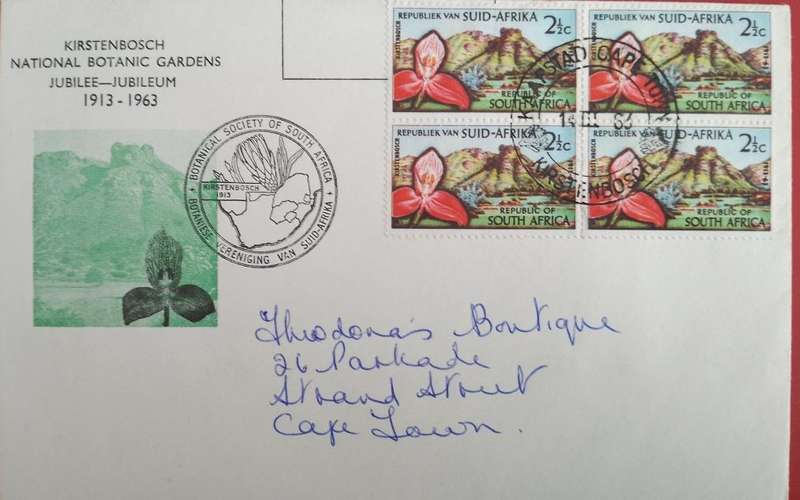 KIRSTENBOSCH
NATIONAL BOTANIC GARDENS
JUBILEE—JUBILEUM
1913 - 1963
BOTANICAL SOCIETY OF SOUTH AFRICA
KIRSTENBOSCH
1913
BOTANIESE VERENIGING VAN SUID-AFRIKA
REPUBLIEK VAN SUID-AFRIKA
2½c
KIRSTENBOSCH
REPUBLIC OF
SOUTH AFRICA
REPUBLIEK VAN SUID-AFRIKA
2½c
KIRSTENBOSCH
REPUBLIC OF
SOUTH AFRICA
REPUBLIEK VAN SUID-AFRIKA
2½c
KIRSTENBOSCH
REPUBLIC OF
SOUTH AFRICA
REPUBLIEK VAN SUID-AFRIKA
2½c
KIRSTENBOSCH
REPUBLIC OF
SOUTH AFRICA
KAAPSTAD CAPE TOWN
63
KIRSTENBOSCH
Theodora's Boutique
26 Parkade
Strand Street
Cape Town.